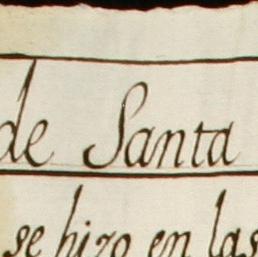 de Santa
se hizo en las